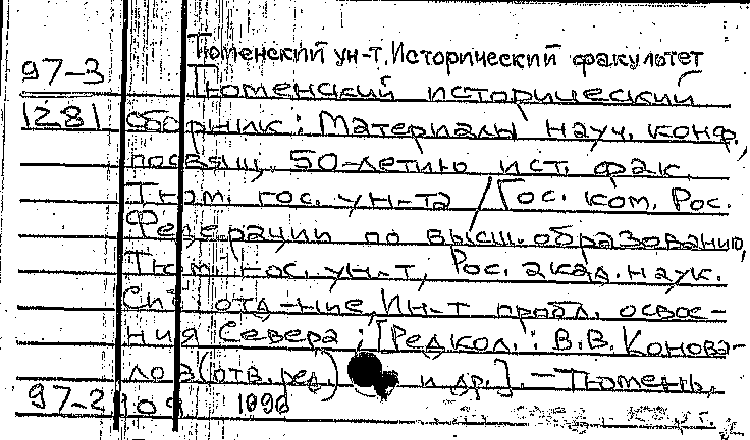 Тюменский ун-т. Исторический факультет
97-3 Тюменский исторический
1281 сборник: Материалы науч. конф.,
посвящ. 50-летию ист. фак.
Тюм. гос. ун-та / Гос. ком. Рос.
Федерации по высш. образованию,
Тюм. гос. ун-т, Рос. акад. наук.
Сиб. отд-ние, Ин-т пробл. освое-
ния Севера; [Редкол.: В.В. Конова-
лов (отв. ред.) и др.]. - Тюмень,
97-2 09 1996